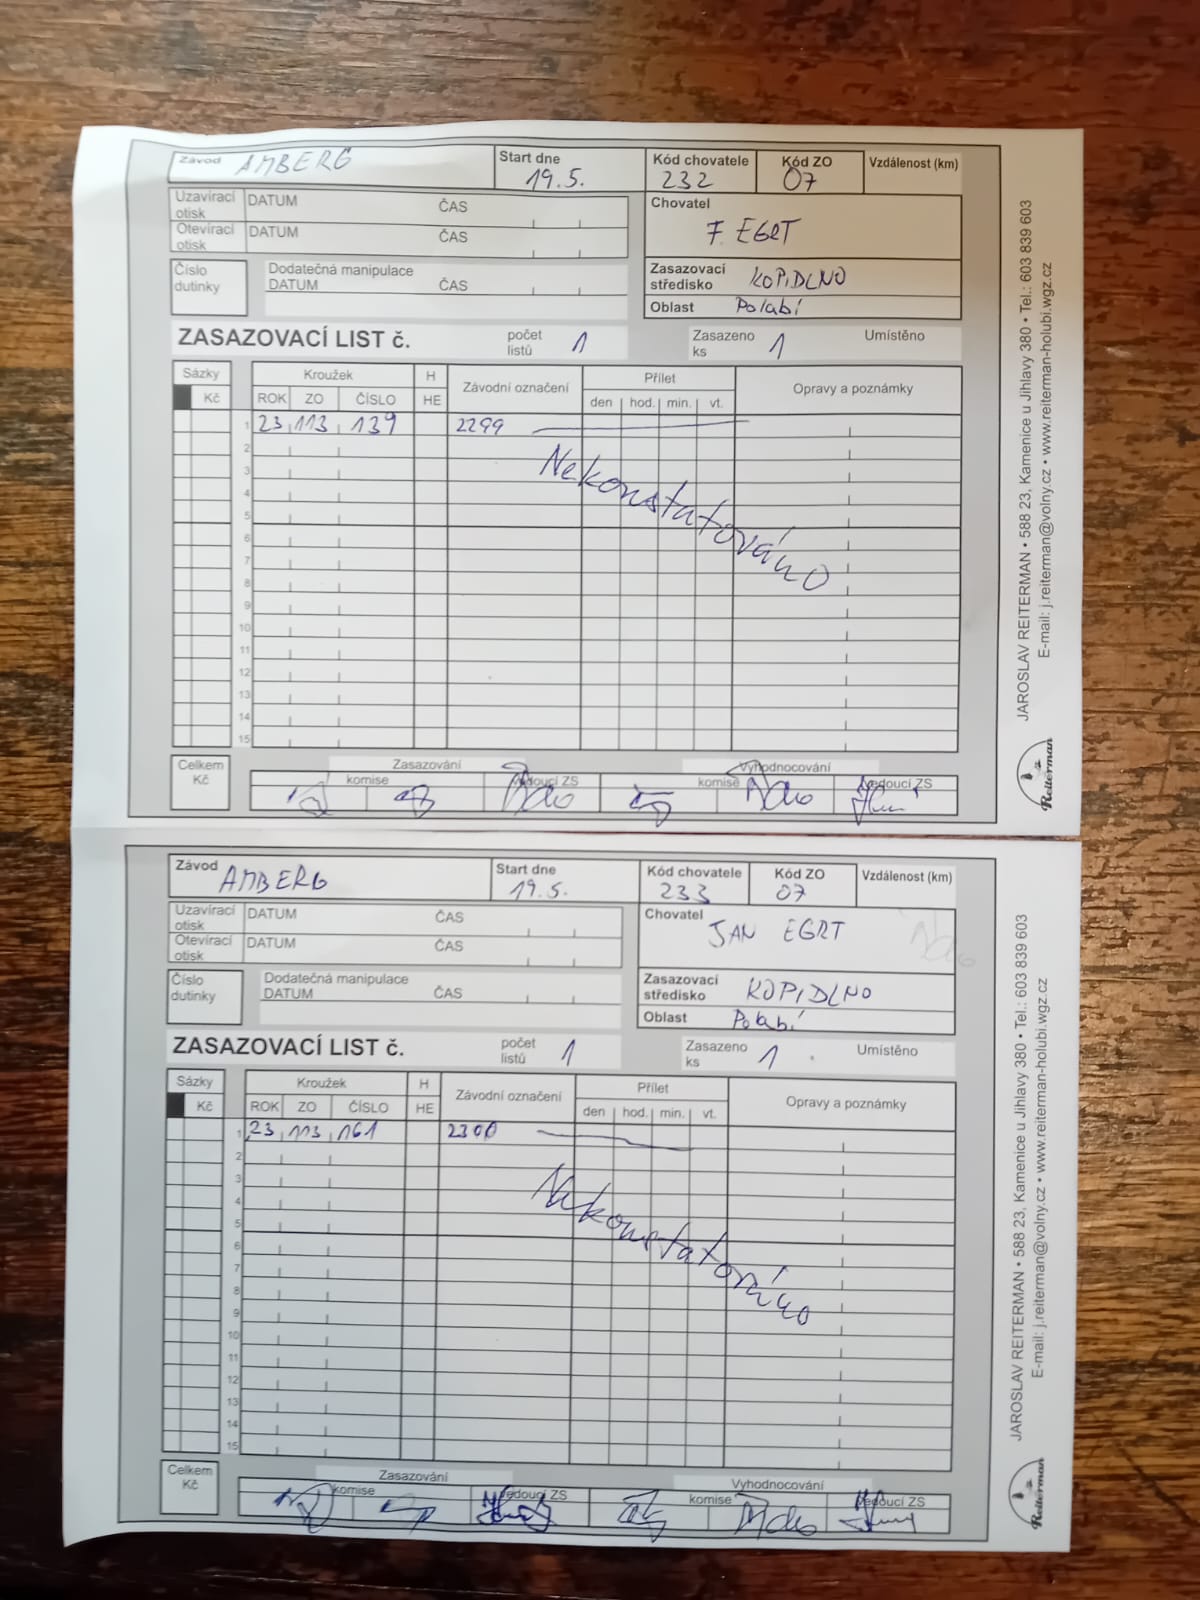 Závod AMBERG
Start dne 19.5.
Kód chovatele 232
Kód ZO 07
Vzdálenost (km)
Uzavírací otisk DATUM ČAS
Otevírací otisk DATUM ČAS
Chovatel F. EGRT
Číslo dutinky
Dodatečná manipulace
DATUM ČAS
Zasazovací středisko KOPIDLNO
Oblast Polabí
ZASAZOVACÍ LIST č.
počet listů 1
Zasazeno ks 1
Umístěno
Sázky Kroužek H Závodní označení Přílet Opravy a poznámky
Kč ROK ZO ČÍSLO HE den hod. min. vt.
1 23 113 139 2299
2
3
4
5
6
7
8
9
10
11
12
13
14
15
Nekonstatováno
Celkem Kč
Zasazování Vyhodnocování
komise vedoucí ZS komise vedoucí ZS
JAROSLAV REITERMAN • 588 23, Kamenice u Jihlavy 380 • Tel.: 603 839 603
E-mail: j.reiterman@volny.cz • www.reiterman-holubi.wgz.cz
Reiterman
Závod AMBERG
Start dne 19.5.
Kód chovatele 233
Kód ZO 07
Vzdálenost (km)
Uzavírací otisk DATUM ČAS
Otevírací otisk DATUM ČAS
Chovatel JAN EGRT
Číslo dutinky
Dodatečná manipulace
DATUM ČAS
Zasazovací středisko KOPIDLNO
Oblast Polabí
ZASAZOVACÍ LIST č.
počet listů 1
Zasazeno ks 1
Umístěno
Sázky Kroužek H Závodní označení Přílet Opravy a poznámky
Kč ROK ZO ČÍSLO HE den hod. min. vt.
1 23 113 161 2300
2
3
4
5
6
7
8
9
10
11
12
13
14
15
Nekonstatováno
Celkem Kč
Zasazování Vyhodnocování
komise vedoucí ZS komise vedoucí ZS
JAROSLAV REITERMAN • 588 23, Kamenice u Jihlavy 380 • Tel.: 603 839 603
E-mail: j.reiterman@volny.cz • www.reiterman-holubi.wgz.cz
Reiterman